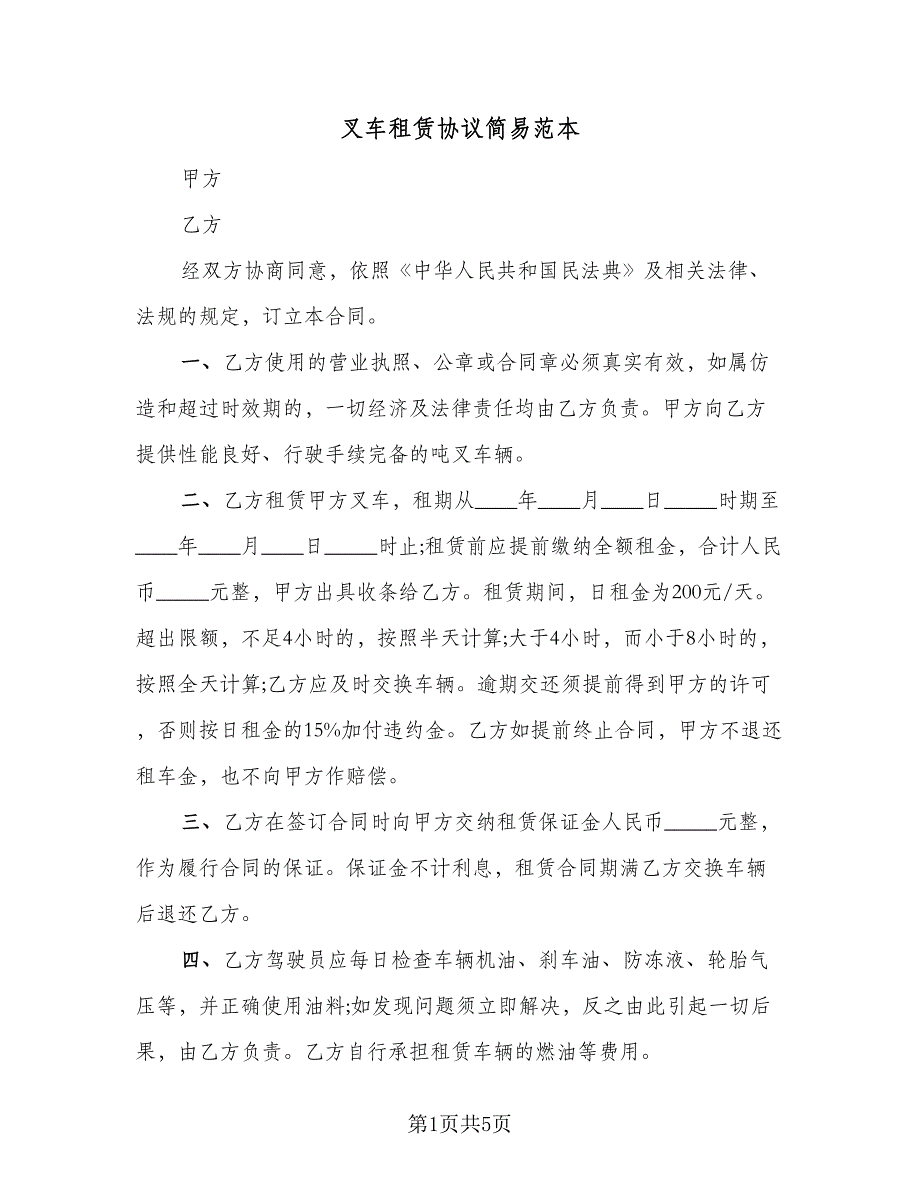 叉车租赁协议简易范本
甲方
乙方
经双方协商同意，依照《中华人民共和国民法典》及相关法律、
法规的规定，订立本合同。
一、乙方使用的营业执照、公章或合同章必须真实有效，如属仿
造和超过时效期的，一切经济及法律责任均由乙方负责。甲方向乙方
提供性能良好、行驶手续完备的吨叉车辆。
二、乙方租赁甲方叉车，租期从____年____月____日_____时期至
____年____月____日_____时止;租赁前应提前缴纳全额租金，合计人民
币_____元整，甲方出具收条给乙方。租赁期间，日租金为200元/天。
超出限额，不足4小时的，按照半天计算;大于4小时，而小于8小时的，
按照全天计算;乙方应及时交换车辆。逾期交还须提前得到甲方的许可
，否则按日租金的15%加付违约金。乙方如提前终止合同，甲方不退还
租车金，也不向甲方作赔偿。
三、乙方在签订合同时向甲方交纳租赁保证金人民币_____元整，
作为履行合同的保证。保证金不计利息，租赁合同期满乙方交换车辆
后退还乙方。
四、乙方驾驶员应每日检查车辆机油、刹车油、防冻液、轮胎气
压等，并正确使用油料;如发现问题须立即解决，反之由此引起一切后
果，由乙方负责。乙方自行承担租赁车辆的燃油等费用。
第1页共5页